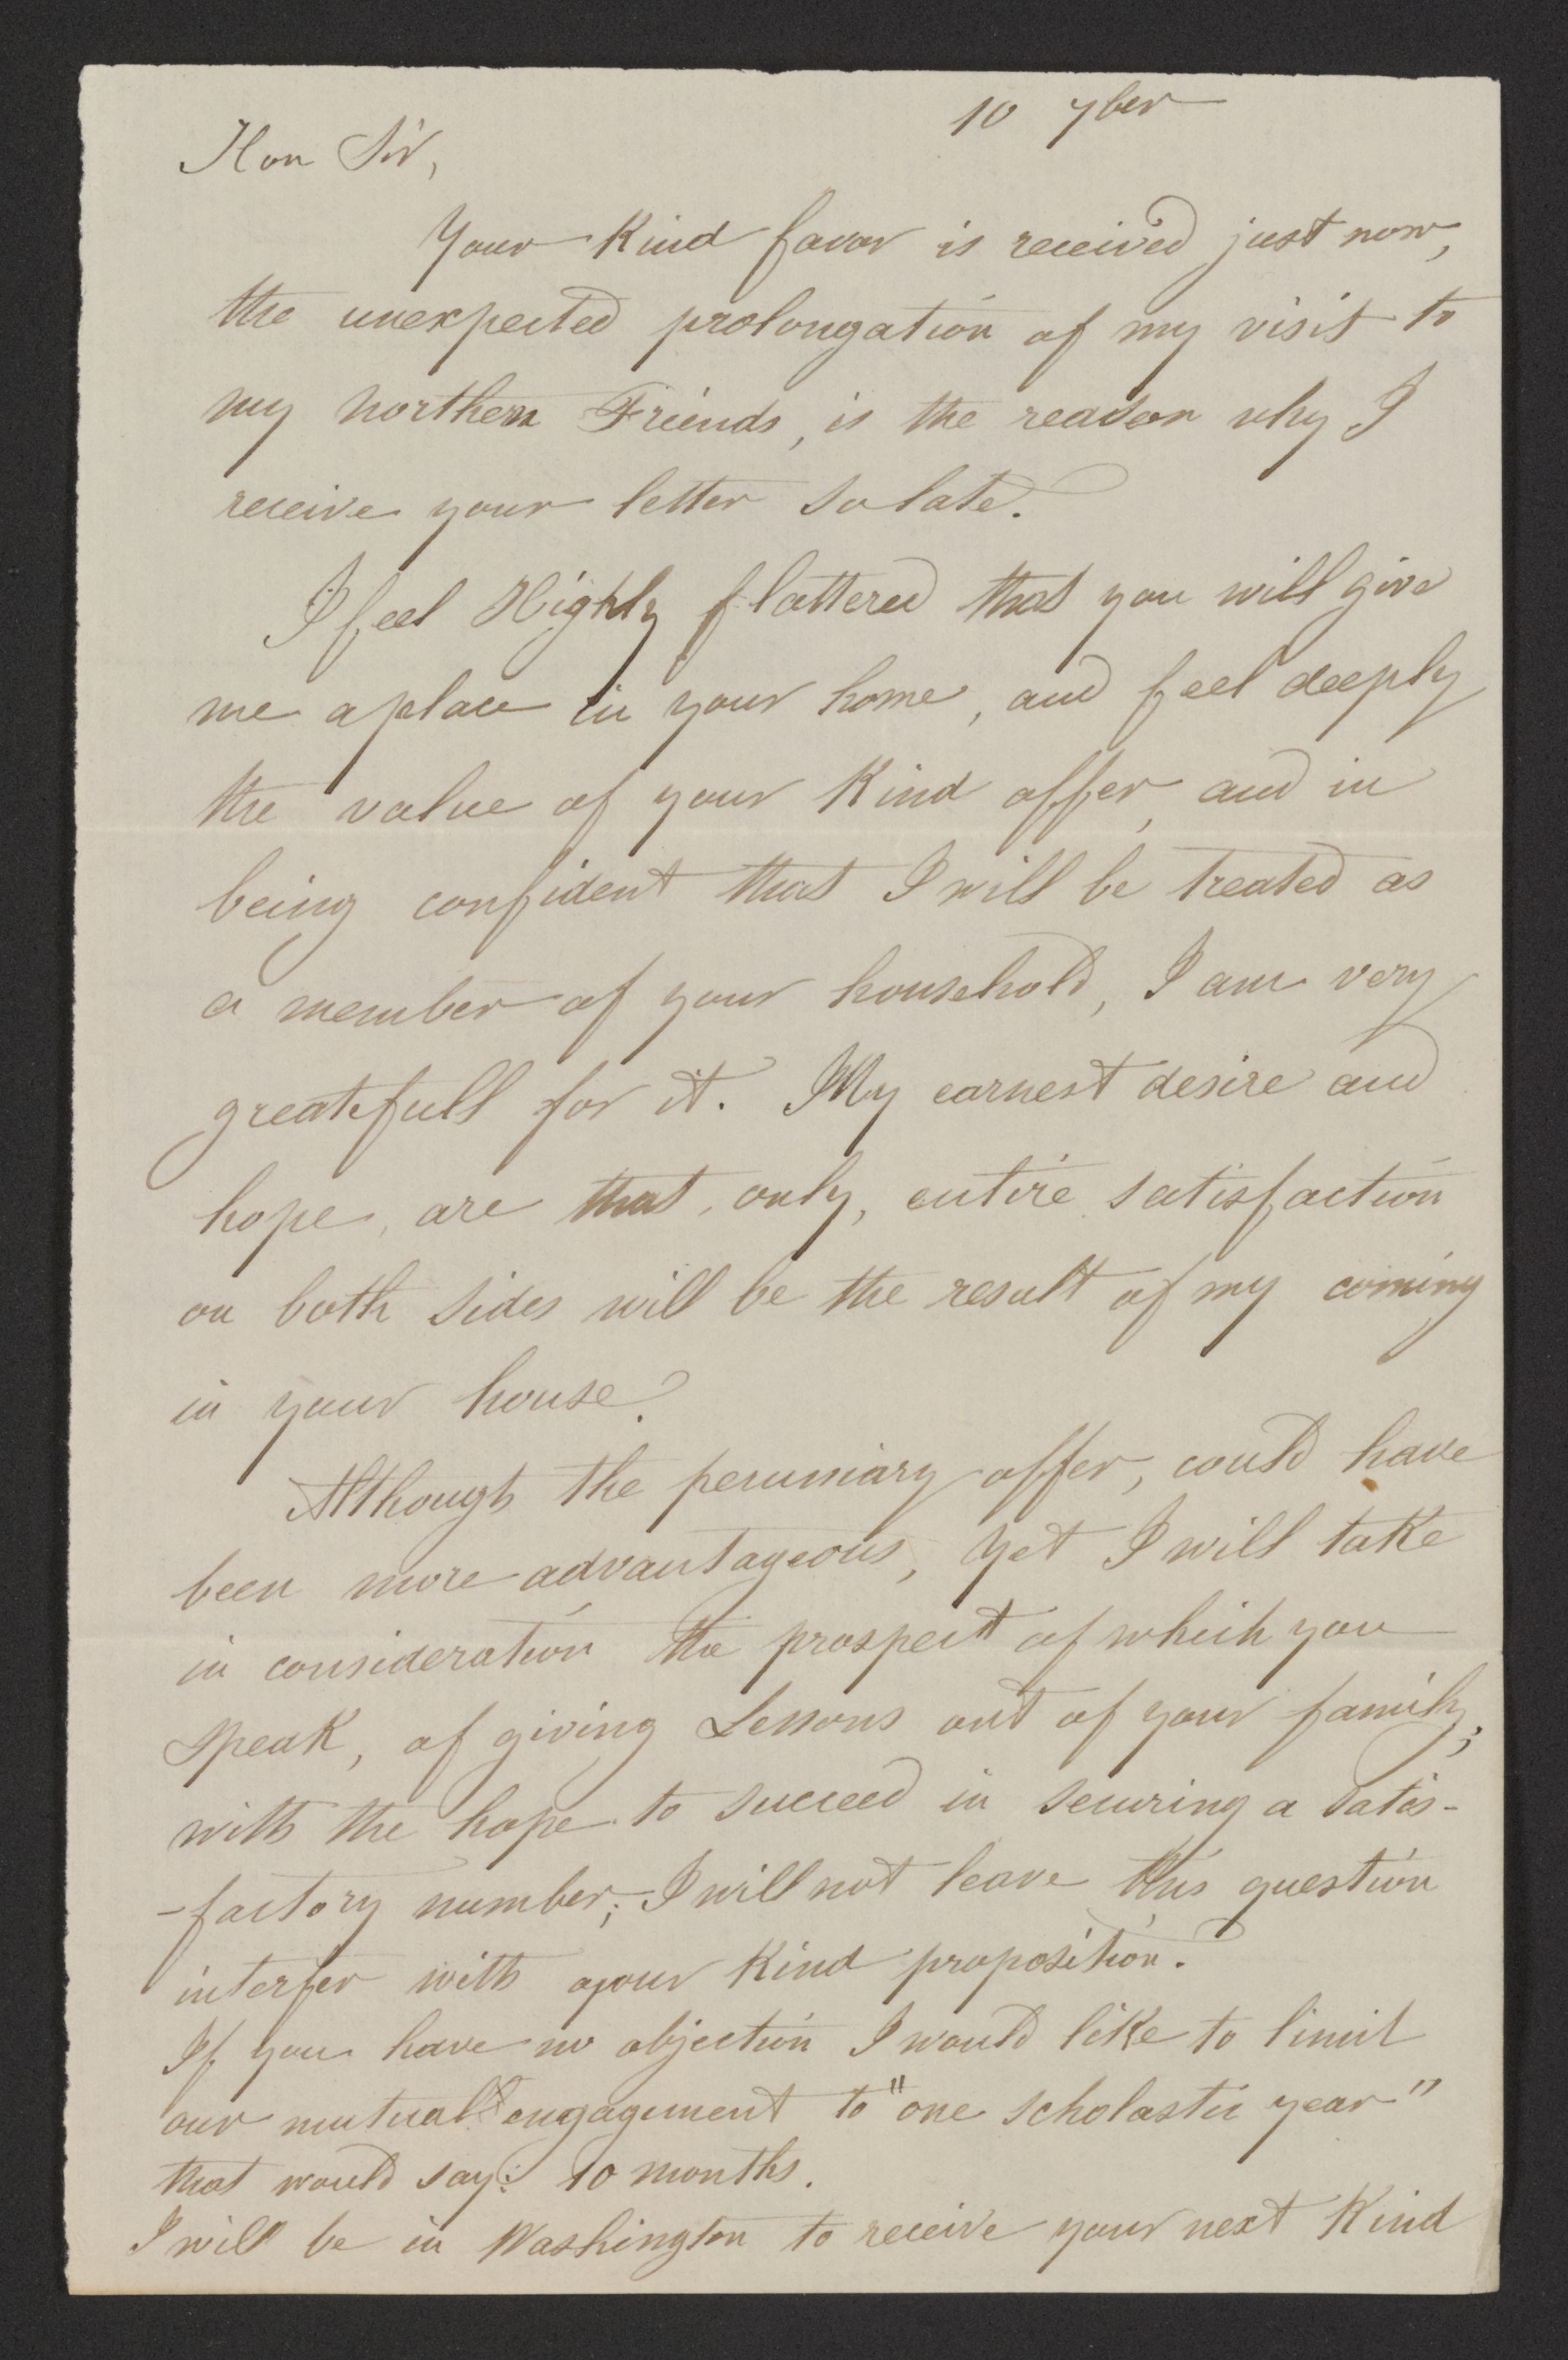 10 7ber
Hon Sir,
Your Kind favor is received just now,
the unexpected prolongation of my visit to
my northern Friends, is the reason why I
receive your letter so late.
I feel Highly flattered that you will give
me a place in your home, and feel deeply
the value of your Kind offer, and in
being confident that I will be treated as
a member of your household, I am very
greatefull for it. My earnest desire and
hope, are that, only, entire satisfaction
on both sides will be the result of my coming
in your house.
Although the pecunniary offer, could have
been more advantageous, yet I will take
in consideration the prospect of which you
speak, of giving Lessons out of your family;
with the hope to succeed in securing a satis-
-factory number; I will not leave this question
interfer with your Kind proposition.
If you have no objection I would like to limit
our mutual engagement to "one scholastic year"
that would say: 10 months.
I will be in Washington to receive your next Kind